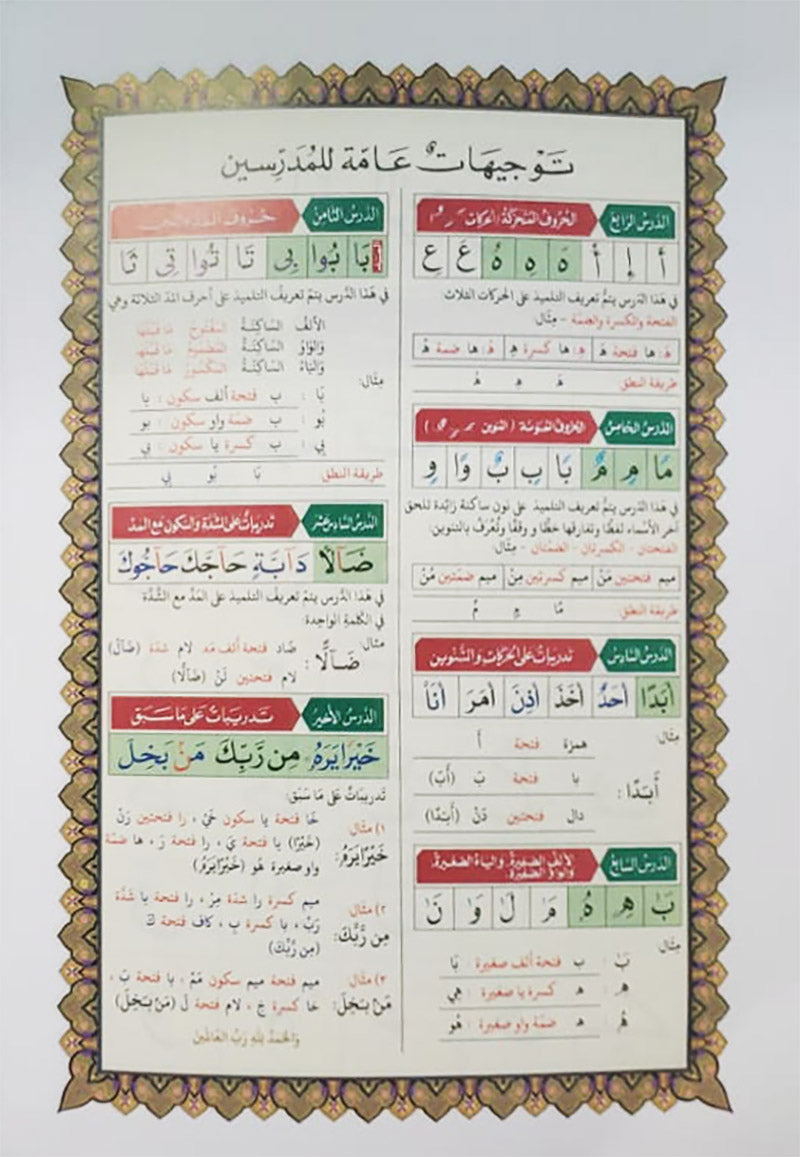 تَوْجِيهَات عَامَّة لِلْمُدَرِّسِين
الدَّرْسُ الرَّابِعُ
الحُرُوفُ المُتَحَرِّكَةُ (الحركات َ ِ ُ)
أَ إِ أُ هَ هِ هُ عَ عِ
في هَذا الدَّرس يتمُّ تعريف التلميذ على الحركات الثلاث
الفتحة والكسرة والضمّة - مِثال:
هَـ: ها فتحة هَ هِـ: ها كسرة هِ هُـ: ها ضمة هُ
طريقة النطق: هَ هِ هُ
الدَّرْسُ الخَامِسُ
الحُرُوفُ المُنَوَّنَةُ (التنوين ً ٍ ٌ)
مًا مٍ مٌ بًا بٍ بٌ وًا وٍ
في هَذا الدَّرس يتم تعريف التلميذ على نون ساكنة زايدة تلحق
آخر الأسماء لفظًا وتفارقها خطًّا و وقفًا وتُعْرَفُ بالتنوين:
الفتحتان - الكسرتان - الضمتان - مِثال:
ميم فتحتين مَنْ ميم كسرتين مِنْ ميم ضمتين مُنْ
طريقة النطق: مًا مٍ مٌ
الدَّرْسُ السَّادِسُ
تَدرِيبَاتٌ عَلى الحَرَكَاتِ وَالتَّنْوِين
أَبَدًا أَحَدٌ أَخَذَ أَذِنَ أَمَرَ أَنَا
مِثال:
أَبَدًا:
همزة فتحة أَ
با فتحة بَ (أَبَ)
دال فتحتين دَنْ (أَبَدًا)
الدَّرْسُ السَّابِعُ
الألف الصَّغِيرَة، والياء الصَّغِيرَة،
والواو الصَّغِيرَة.
بٰ هِۦ هُۥ مٰ لٰ وٰ نٰ
مِثال:
بٰ : ب فتحة ألف صغيرة : بَا
هِـ : هـ كسرة يا صغيرة : هِي
هُـ : هـ ضمّة واو صغيرة : هُو
الدَّرْسُ الثَّامِنُ
حُرُوفُ المَدِّ وَاللِّين
بَا بُوا بِي تَا تُوا تِي ثَا
في هَذا الدَّرس يتم تعريف التلميذ على أحرف المد الثلاثة وهي
الألفُ السّاكِنَةُ المَفتُوحُ مَا قَبْلَهَا
والوَاوُ السّاكِنَةُ المَضْمُومُ مَا قَبْلَهَا
واليَاءُ السّاكِنَةُ المَكْسُورُ مَا قَبْلَهَا
مِثال:
بَا : ب فتحة ألف سكون : با
بُو : ب ضمّة واو سكون : بو
بِي : ب كسرة يا سكون : بي
طريقة النطق: بَا بُو بِي
الدَّرْسُ السَّادِس عَشَر
تدريبات على الشدَّة والسكون مَعَ المَدّ
ضَآلًّا دَآبَّةٍ حَآجَّكَ حَآجُّوكَ
في هَذا الدَّرس يتم تعريف التلميذ على المَدِّ مَع الشَّدَّة
في الكَلِمَةِ الواحِدة:
مثال:
ضَآلًّا :
ضاد فتحة ألف مد لام شدّة (ضَآلّ)
لام فتحتين لَنْ (ضَآلًّا)
الدَّرْسُ الأَخِير
تَدرِيبَات عَلى مَا سَبَق
خَيْرًا يَرَهُۥ مِن رَّبِّكَ مَنۢ بَخِلَ
تَدريباتٌ عَلى مَا سَبَق:
١) مثال: خَا فتحة يا سكون خَيْ، را فتحتين رَنْ
خَيْرًا يَرَهُ: (خَيْرًا) يا فتحة يَ، را فتحة رَ، ها ضمّة
واو صغيرة هُو (خَيْرًا يَرَهُ)
٢) مثال: ميم كسرة را شدّة مِرْ، را فتحة با شدّة
مِن رَّبِّكَ: رَبّ، با كسرة بِ، كاف فتحة كَ
(مِن رَّبِّكَ)
٣) مثال: ميم فتحة ميم سكون مَمْ، با فتحة بَ،
مَنۢ بَخِلَ: خا كسرة خِ، لام فتحة لَ (مَنۢ بَخِلَ)
وَالحَمدُ لِلَّهِ رَبِّ العَالَمِينَ